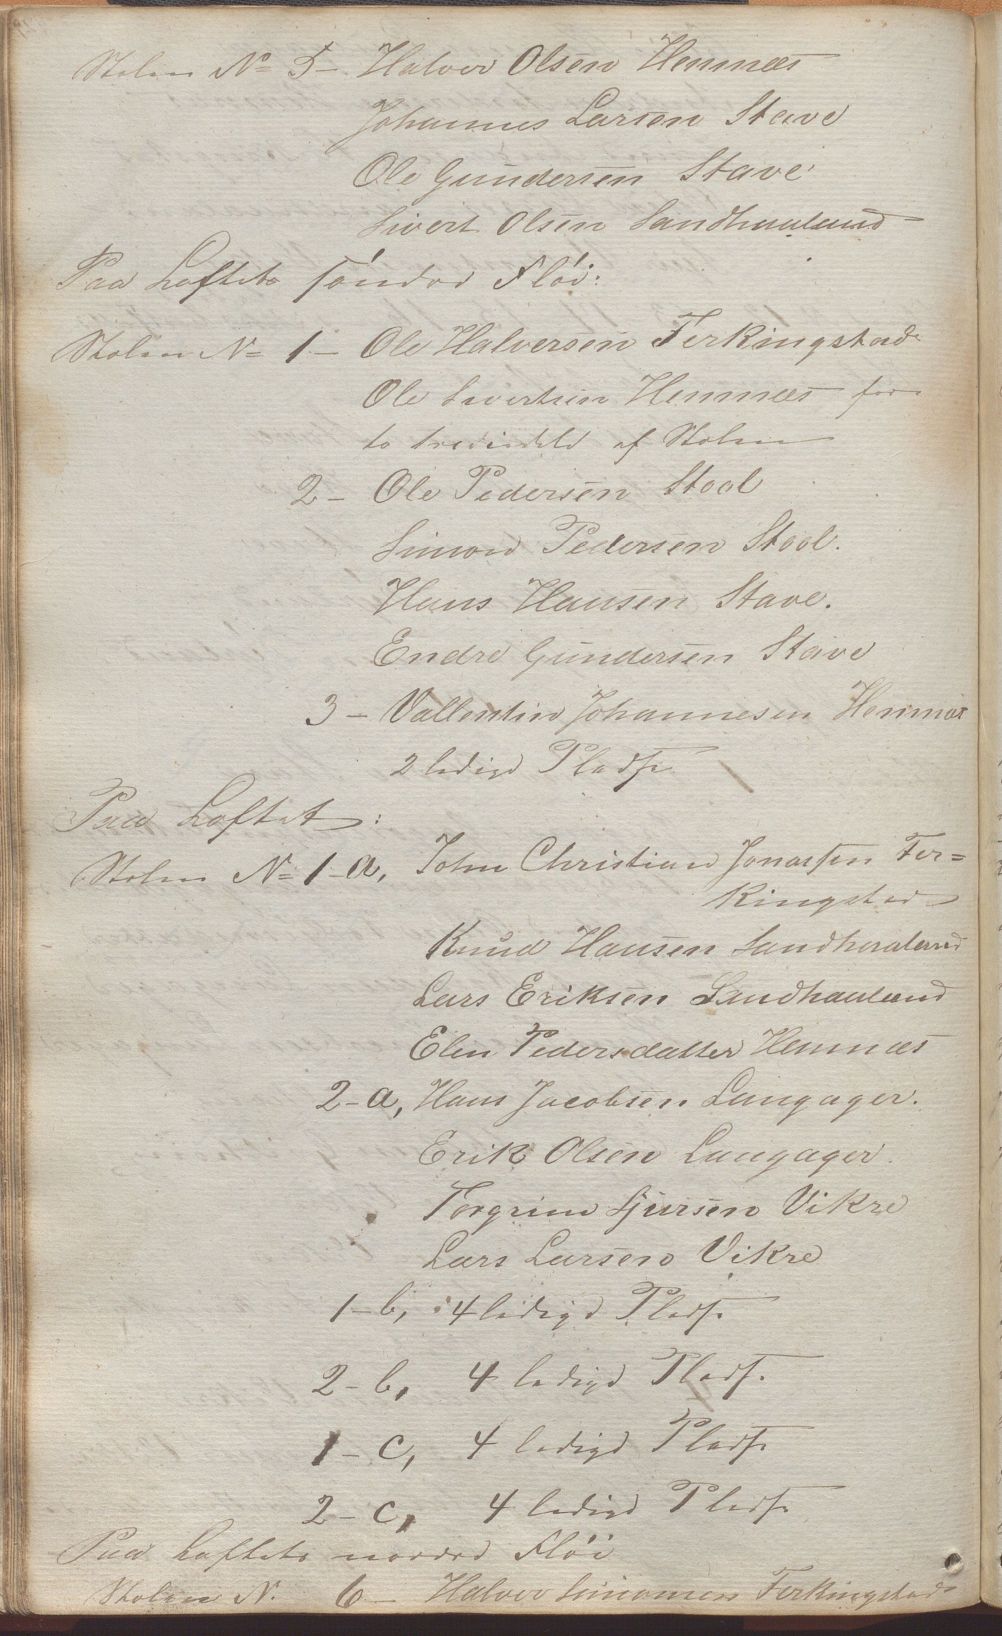 Stolen No 5 – Halvor Olsen Hemnæs
Johannes Larsen Stave
Ole Gundersen Stave
Sivert Olsen Sandhauland
Paa Loftets søndre Fløi:
Stolen No 1 – Ole Halversen Ferkingstad
Ole Sivertsen Hemnæs for
to trediedele af Stolen
2 – Ole Pedersen Stool
Simon Pedersen Stool.
Hans Hansen Stave.
Endre Gundersen Stave
3 – Vallentin Johannesen Hemnæs
2 ledige Pladse
Paa Loftet:
Stolen No 1-a, John Christian Jonassen Fer=
kingstad
Knud Hansen Sandhauland
Lars Eriksen Sandhauland
Elen Pedersdatter Hemnæs
2-a, Hans Jacobsen Langager.
Erik Olsen Langager.
Torgrim Sjursen Vikre
Lars Larsen Vikre
1-b, 4 ledige Pladse
2-b, 4 ledige Pladse
1-c, 4 ledige Pladse
2-c, 4 ledige Pladse
Paa Loftets nordre Fløi
Stolen N. 6 – Halvor Simonsen Ferkingstad